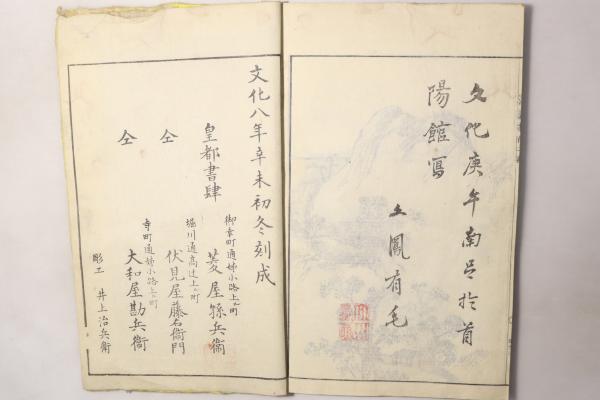 文化庚午南呂於首
陽館寫
土鳳有毛
文化八年辛未初冬刻成
皇都書肆
御幸町通姉小路上ル町
菱屋孫兵衞
堀川通高辻上ル町
仝 伏見屋藤右衞門
寺町通姉小路上ル町
仝 大和屋勘兵衞
彫工 井上治兵衞